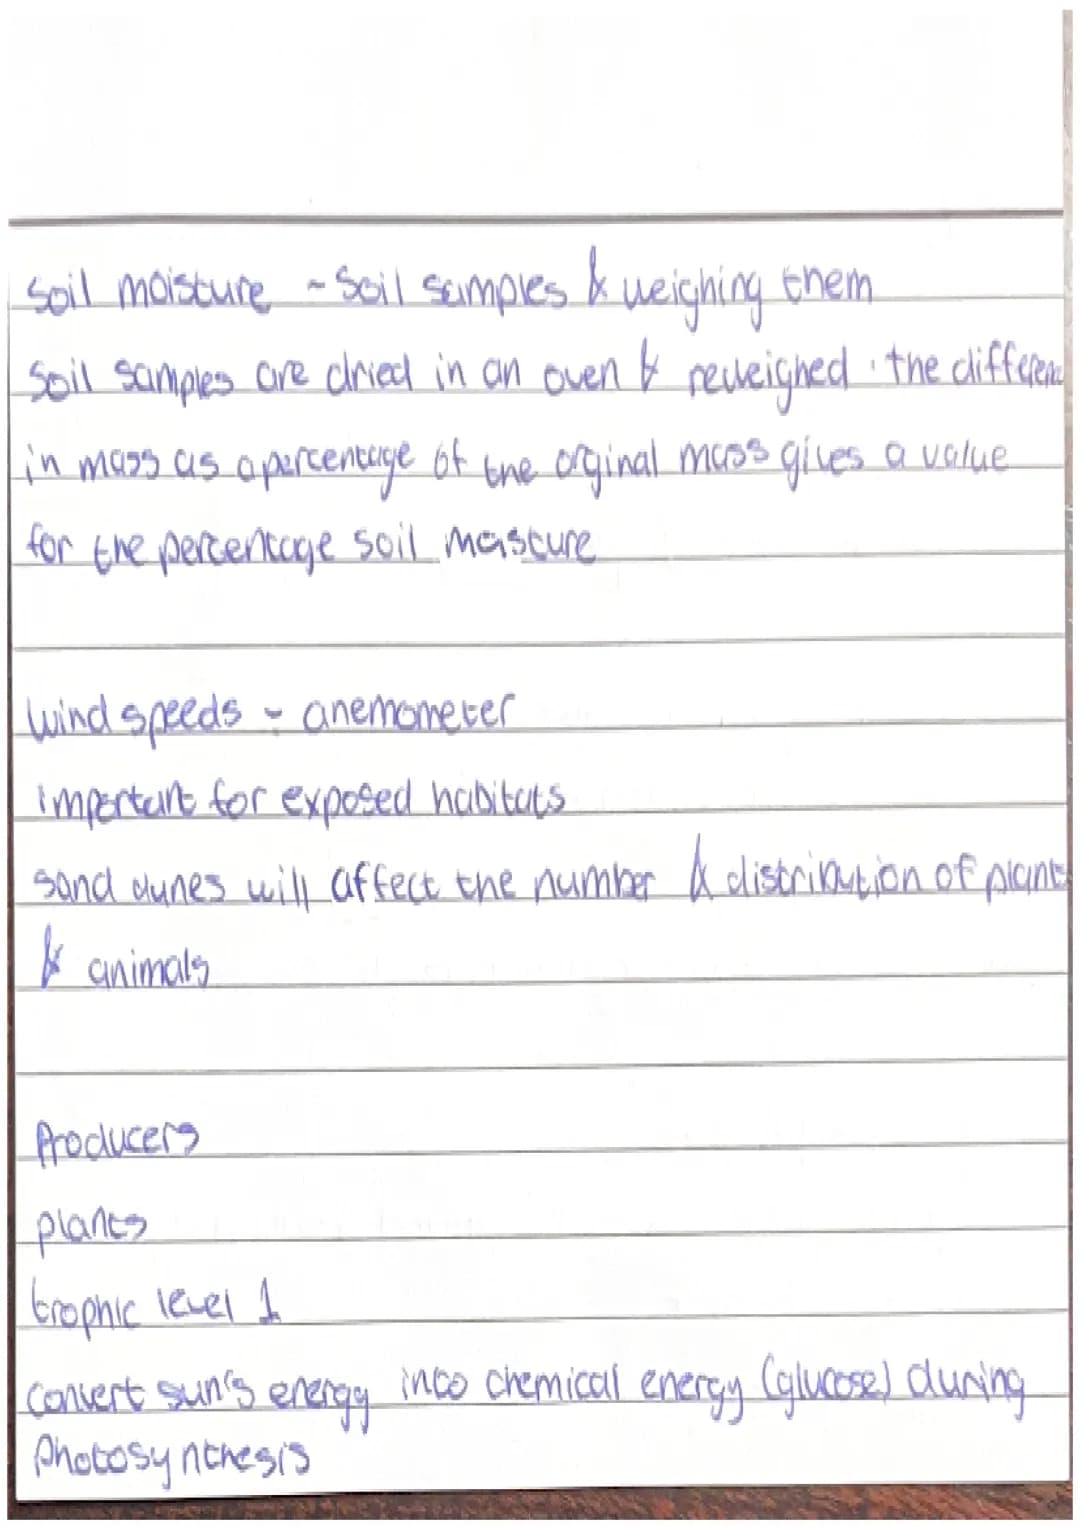 Soil moisture - Soil samples & weighing them
Soil samples are dried in an oven & reweighed. the differenc
in mass as a percentage of the orginal mass gives a value
for the percentage soil moisture
wind speeds - anemometer
important for exposed habitats
sand dunes will affect the number & distribution of plants
& animals
Producers
plants
trophic level 1
convert sun's energy into chemical energy (glucose) during
Photosynthesis